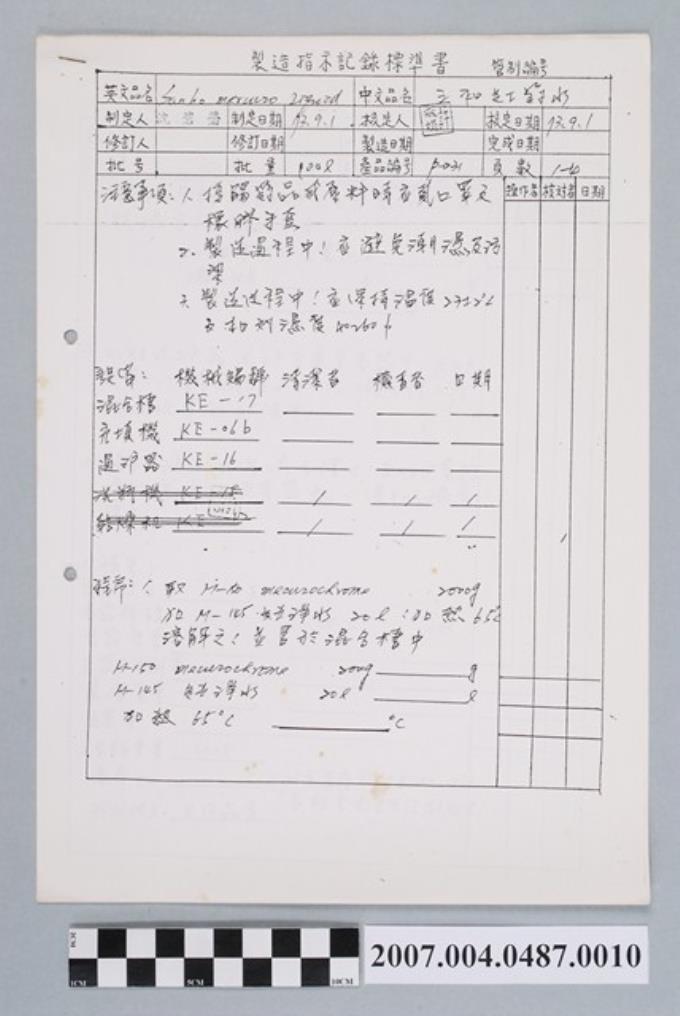 製造指示記錄標準書 管制編號
英文品名 Sanho mercuro 中文品名 三和 水
制定人 制定日期 72.9.1 核定人 核定日期 72.9.1
修訂人 修訂日期 製造日期 完成日期
批号 批量 產品編号 頁數 1-4
注意事項: 1. 接觸藥品或原料時應戴口罩及 操作者 核對者 日期
橡膠手套
2. 製造過程中!應避免潮濕及污
染
3. 製造過程中!應保持溫度
及相對濕度
設備: 機械編號 清潔者 檢查者 日期
混合槽 KE-17
充填機 KE-06b
過濾器 KE-16
KE-
KE
程序: 1. 取 M-150 mecurochrome 2000g
加 M-145 純淨水 20l !加熱 65℃
溶解之!並置於混合槽中
M-150 mecurochrome g
M-145 純淨水 20l l
加熱 65°C °C
1CM 5CM 10CM
2007.004.0487.0010